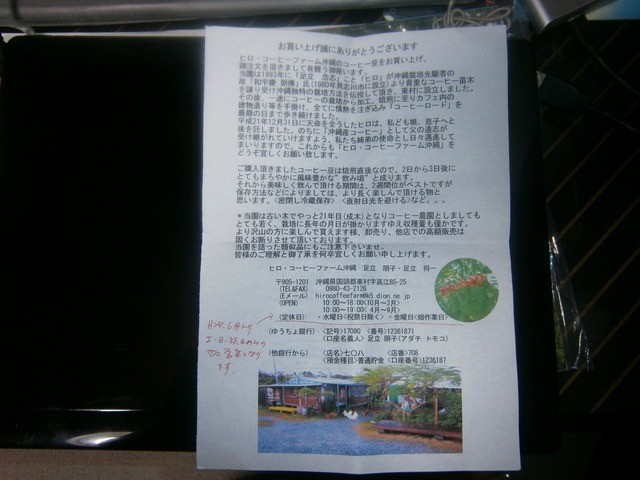 お買い上げ誠にありがとうございます
ヒロ・コーヒーファーム沖縄のコーヒー豆をお買い上げ、
御注文を頂きまして有難う御座います。
当園は1993年に「足立 浩志」こと「ヒロ」が沖縄栽培先駆者の
故「和宇慶 朝傳」氏(1980年具志川市に設立)より貴重なコーヒー苗木
を譲り受け沖縄独特の栽培方法を伝授して頂き、東村に設立しました。
その後、一途にコーヒーの栽培から加工、焙煎に至りカフェ内の
建物造り等を手掛け、全てに情熱を注ぎ込み「コーヒーロード」を
最期の日まで歩き続けました。
平成21年12月31日に天命を全うしたヒロは、私ども娘、息子へと
後を託しました。のちに「沖縄産コーヒー」として父の遺志が
受け継がれていけますよう、私たち姉弟の使命とし日々邁進して
まいりますので、これからも「ヒロ・コーヒーファーム沖縄」を
どうぞ宜しくお願い致します。
ご購入頂きましたコーヒー豆は焙煎直後なので、2日から3日後に
とてもまろやかに風味豊かな"飲み頃"と成ります。
それから美味しく飲んで頂ける期間は、2週間位がベストですが
保存方法などによりましては、より長く楽しんで頂ける物と
思います。<密閉し冷蔵保存> <直射日光を避ける>など。。。
*当園は古い木でやっと21年目(成木)となりコーヒー農園としましても
とても若く、栽培に長年の月日が掛かりますゆえ収穫量も僅かです。
より沢山の方に楽しんで貰えます様、卸売り、他店での高額販売は
固くお断りさせて頂いております。
当園を語った類似品にもご注意下さいませ。
皆様のご理解と御了承を何卒宜しくお願い申し上げます。
ヒロ・コーヒーファーム沖縄 足立 朋子・足立 将一
〒905-1201 沖縄県国頭郡東村字高江85-25
(TEL&FAX) 0980-43-2126
(Eメール) hirocoffeefarm@k5.dion.ne.jp
(OPEN) 10:00~18:00<10月~3月>
10:00~19:00<4月~9月>
(定休日)・水曜日<祝祭日除く>・金曜日<畑作業日>
(ゆうちょ銀行) <記号>17090 <番号>12361871
<口座名義人>足立 朋子(アダチ トモコ)
(他銀行から) <店名>七〇八 <店番>708
<預金種目>普通貯金 <口座番号>1236187
H24.6月より
土・日・祝日のみの
カフェ営業となり
ます。